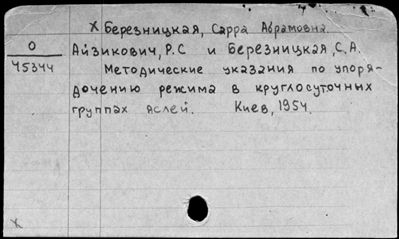 х Березницкая, Сарра Абрамовна.
О
45344
Айзикович, Р.С и Березницкая, С.А.
Методические указания по упоря-
дочению режима в круглосуточных
группах яслей. Киев, 1954.
х